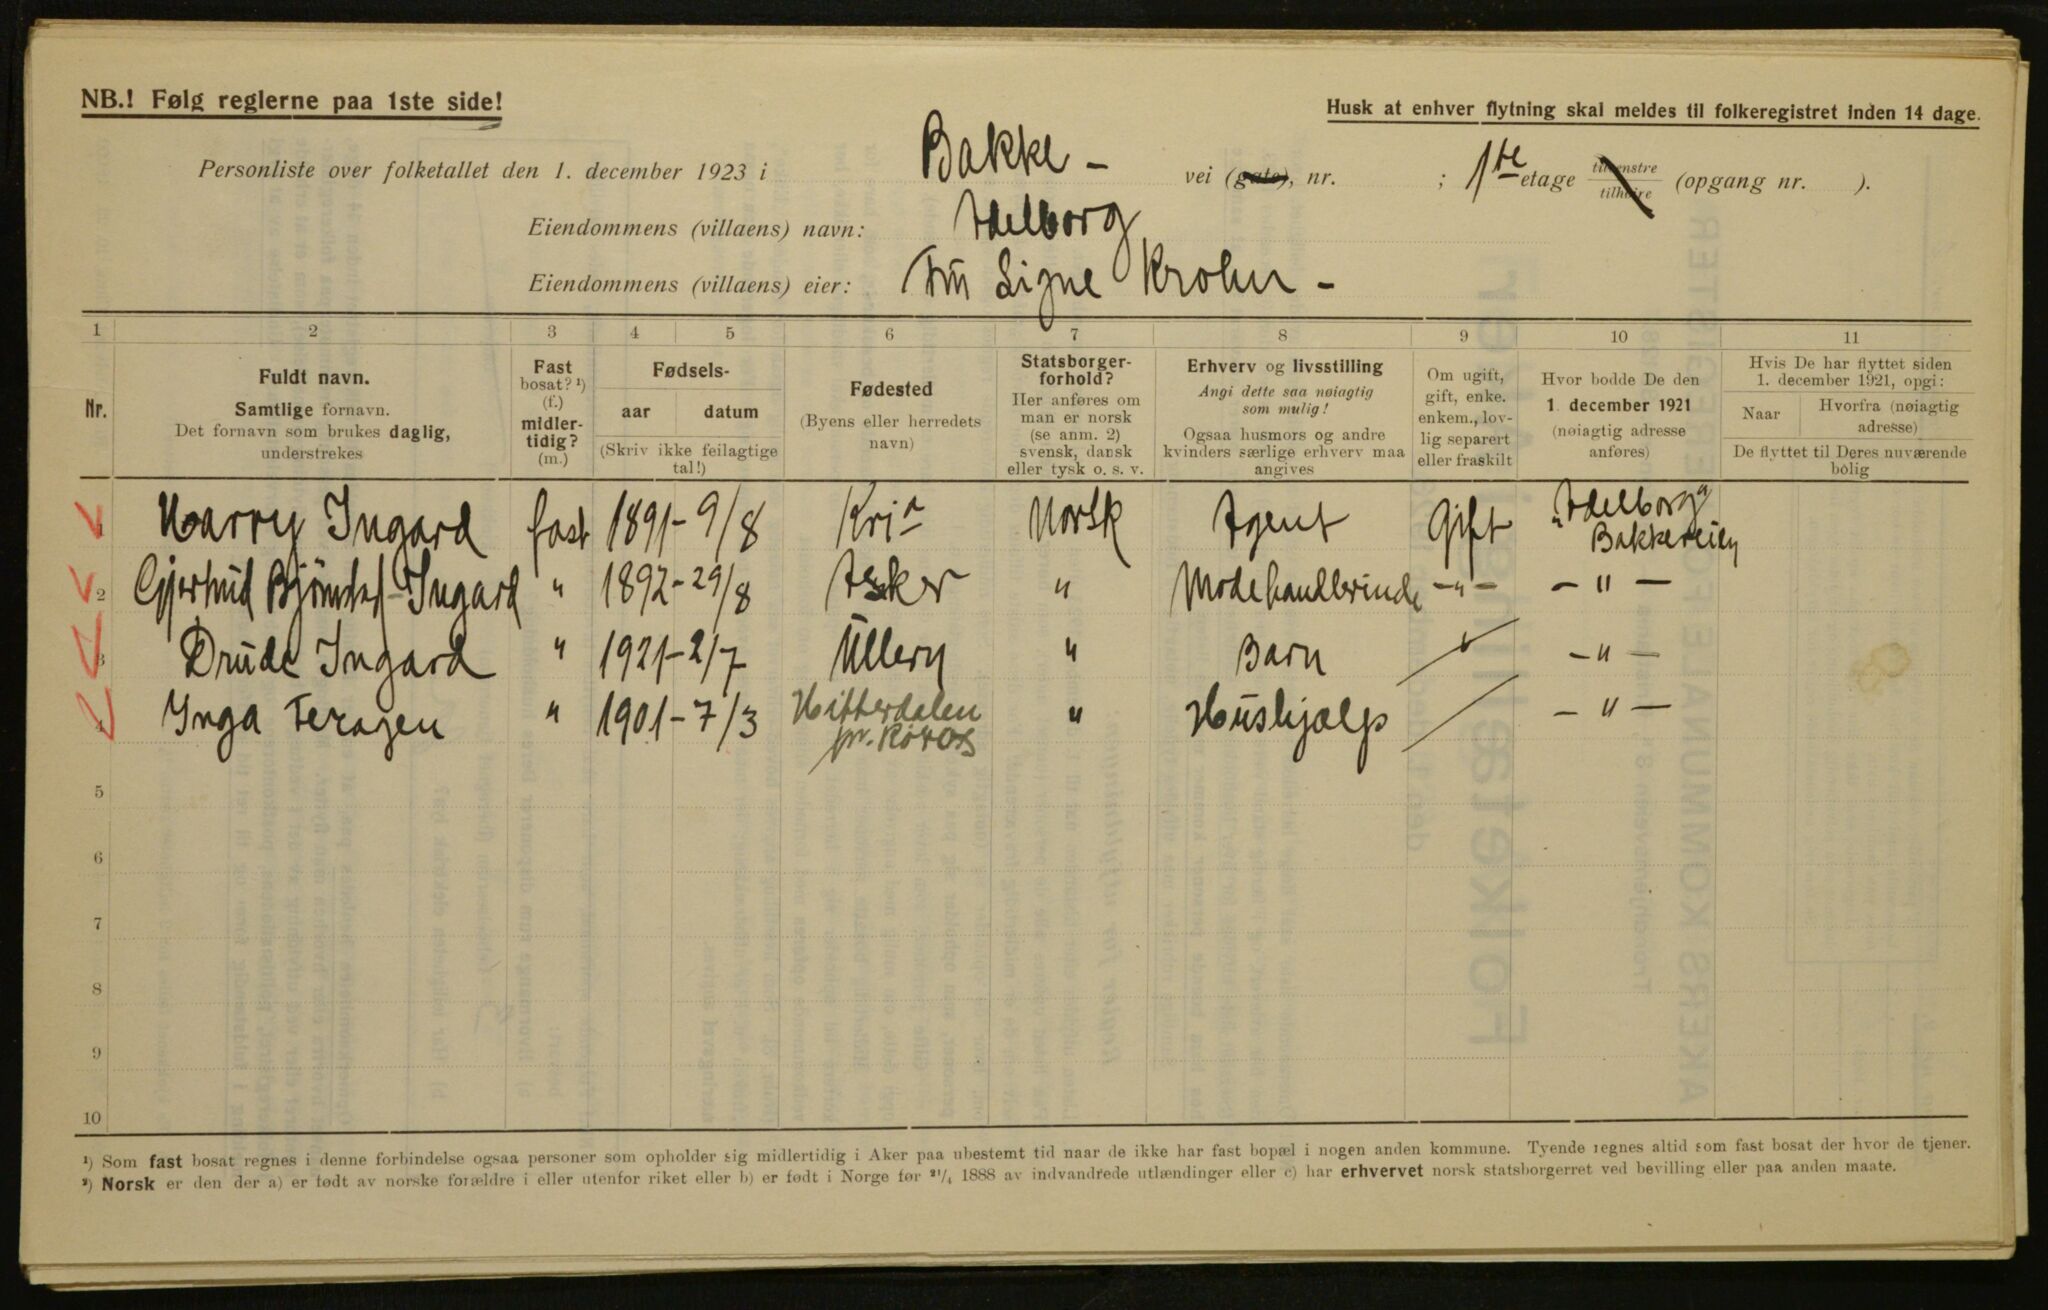 NB.! Følg reglerne paa 1ste side!
Husk at enhver flytning skal meldes til folkeregistret inden 14 dage.
Personliste over folketallet den 1. december 1923 i Bakke - vei (gate), nr. ; 1ste etage tilvenstre tilhøire (opgang nr. ).
Eiendommens (villaens) navn: Adelborg
Eiendommens (villaens) eier: Fru Signe Krohn -
1 2 3 4 5 6 7 8 9 10 11
Nr.
Fuldt navn.
Samtlige fornavn.
Det fornavn som brukes daglig,
understrekes
Fast
bosat? ¹)
(f.)
midler-
tidig?
(m.)
Fødsels-
aar datum
(Skriv ikke feilagtige
tal!)
Fødested
(Byens eller herredets
navn)
Statsborger-
forhold?
Her anføres om
man er norsk
(se anm. 2)
svensk, dansk
eller tysk o. s. v.
Erhverv og livsstilling
Angi dette saa nøiagtig
som mulig!
Ogsaa husmors og andre
kvinders særlige erhverv maa
angives
Om ugift,
gift, enke.
enkem., lov-
lig separert
eller fraskilt
Hvor bodde De den
1. december 1921
(nøiagtig adresse
anføres)
Hvis De har flyttet siden
1. december 1921, opgi:
Naar Hvorfra (nøiagtig
adresse)
De flyttet til Deres nuværende
bolig
1 Harry Ingard fast 1891 - 9/8 Kria Norsk Agent Gift "Adelborg" Bakkeveien
2 Gjertrud Bjørnstad-Ingard " 1892 - 29/8 Asker " Modehandlerinde - " - - " -
3 Drude Ingard " 1921 - 2/7 Ullern " Barn - " -
4 Inga Feragen " 1901 - 7/3 Hitterdalen pr. Røros " Hushjælp - " -
5
6
7
8
9
10
¹) Som fast bosat regnes i denne forbindelse ogsaa personer som opholder sig midlertidig i Aker paa ubestemt tid naar de ikke har fast bopæl i nogen anden kommune. Tyende regnes altid som fast bosat der hvor de tjener.
²) Norsk er den der a) er født av norske forældre i eller utenfor riket eller b) er født i Norge før 21/4 1888 av indvandrede utlændinger eller c) har erhvervet norsk statsborgerret ved bevilling eller paa anden maate.